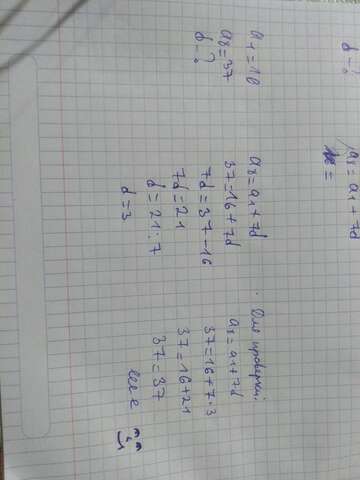 d-?
a₈ = a₁ + 7d
=
a₁ = 16
a₈ = 37
d-?
a₈ = a₁ + 7d
37 = 16 + 7d
7d = 37 - 16
7d = 21
d = 21 : 7
d = 3
Для проверки:
a₈ = a₁ + 7d
37 = 16 + 7 · 3
37 = 16 + 21
37 = 37